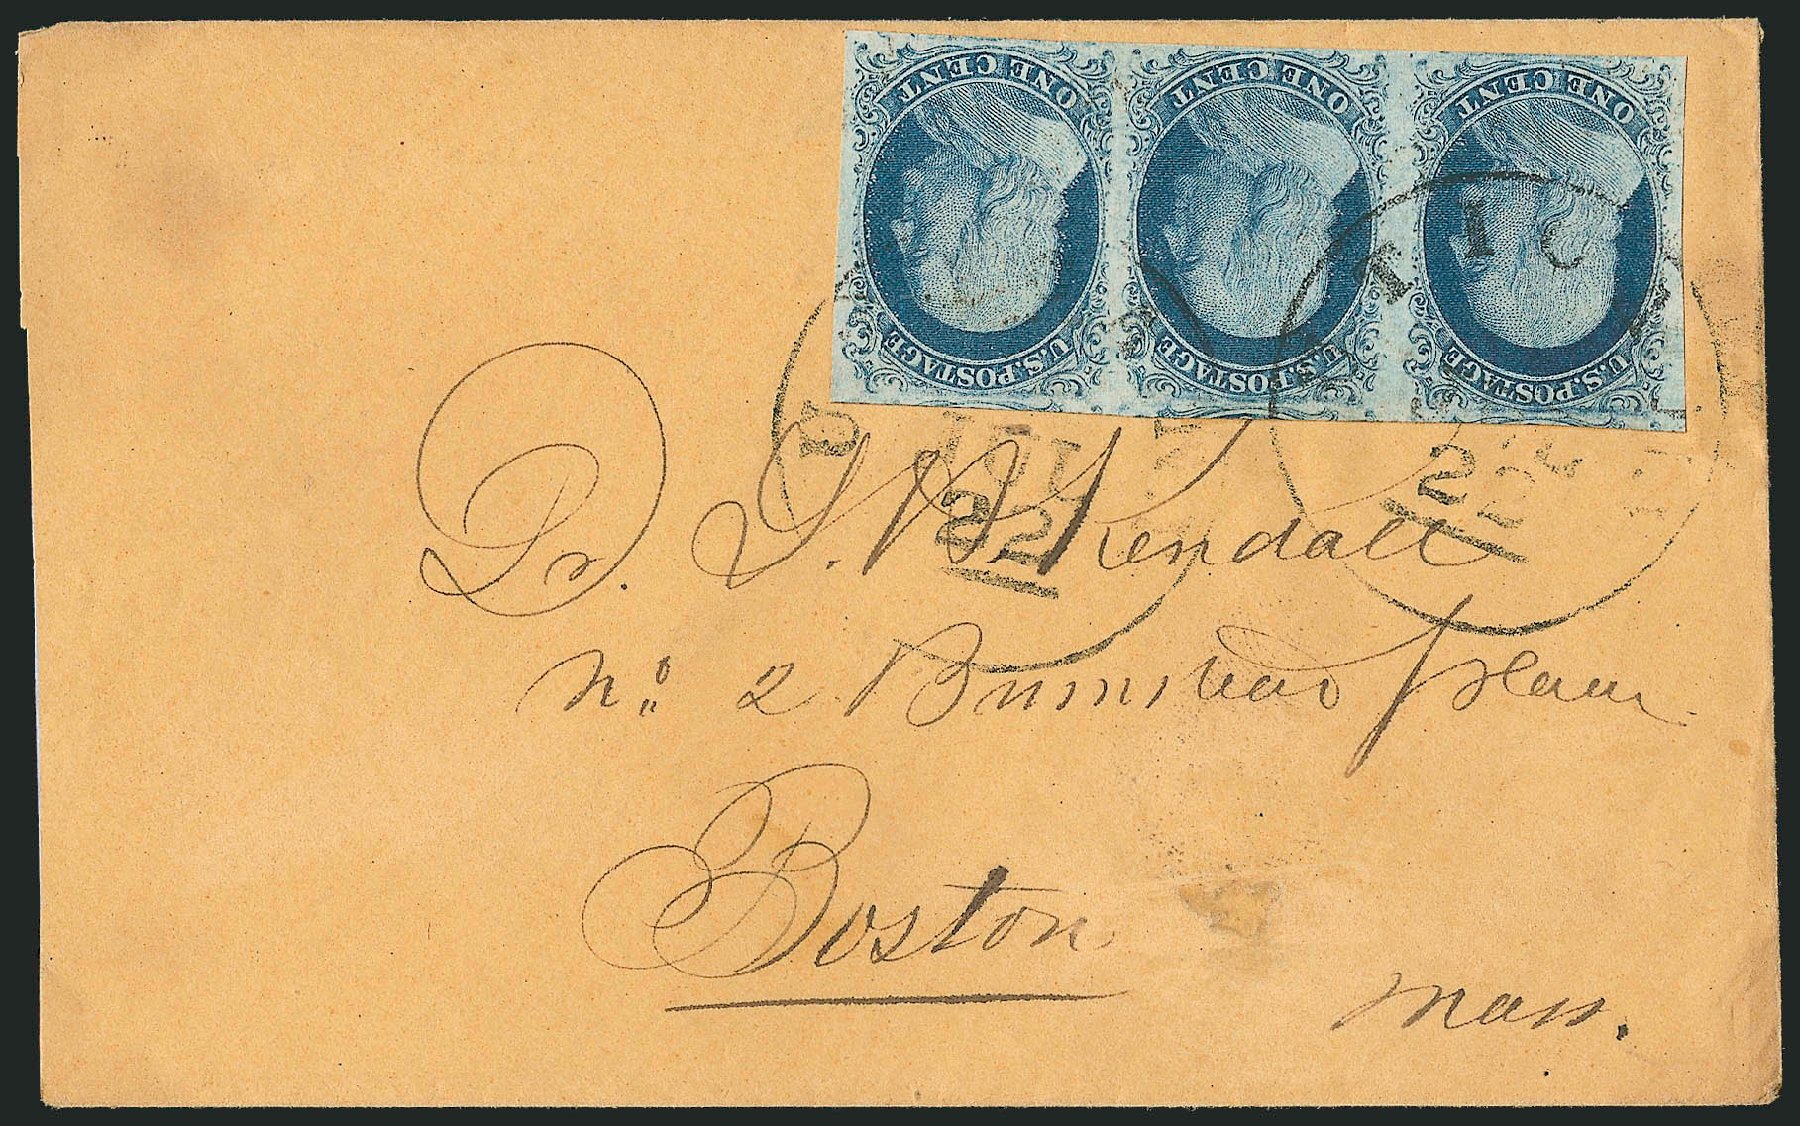 ONE CENT ONE CENT ONE CENT
U.S. POSTAGE U.S. POSTAGE U.S. POSTAGE
JUL
22
22
Dr. Kendall
No. 2 Bumstead Place
Boston
Mass.